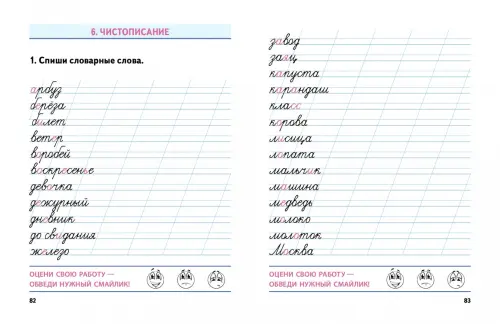 6. ЧИСТОПИСАНИЕ
1. Спиши словарные слова.
арбуз
берёза
билет
ветер
воробей
воскресенье
девочка
дежурный
дневник
до свидания
железо
ОЦЕНИ СВОЮ РАБОТУ —
ОБВЕДИ НУЖНЫЙ СМАЙЛИК!
82
завод
заяц
капуста
карандаш
класс
корова
лисица
лопата
мальчик
машина
медведь
молоко
молоток
Москва
ОЦЕНИ СВОЮ РАБОТУ —
ОБВЕДИ НУЖНЫЙ СМАЙЛИК!
83